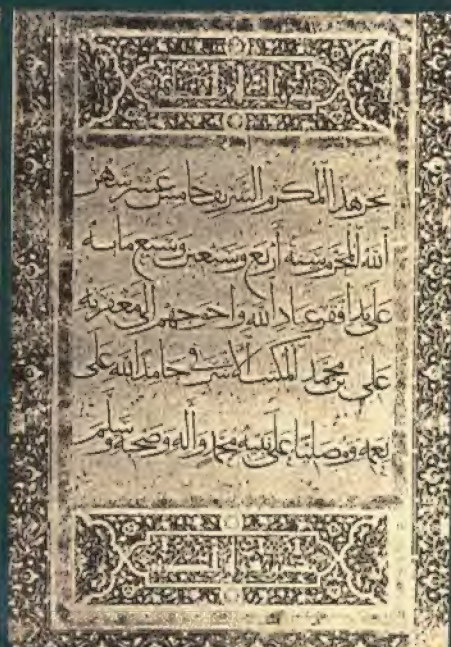 نجز هذا المكرم الشريف خامس عشر شهر
الله المحرم سنة أربع وسبعين وسبع مايه
على يد افقر عباد الله واحوجهم الى مغفرته
على بن محمد المكتب الاشرفى حامدا لله على
نعمه ومصليا على نبيه محمد وآله وصحبه وسلم